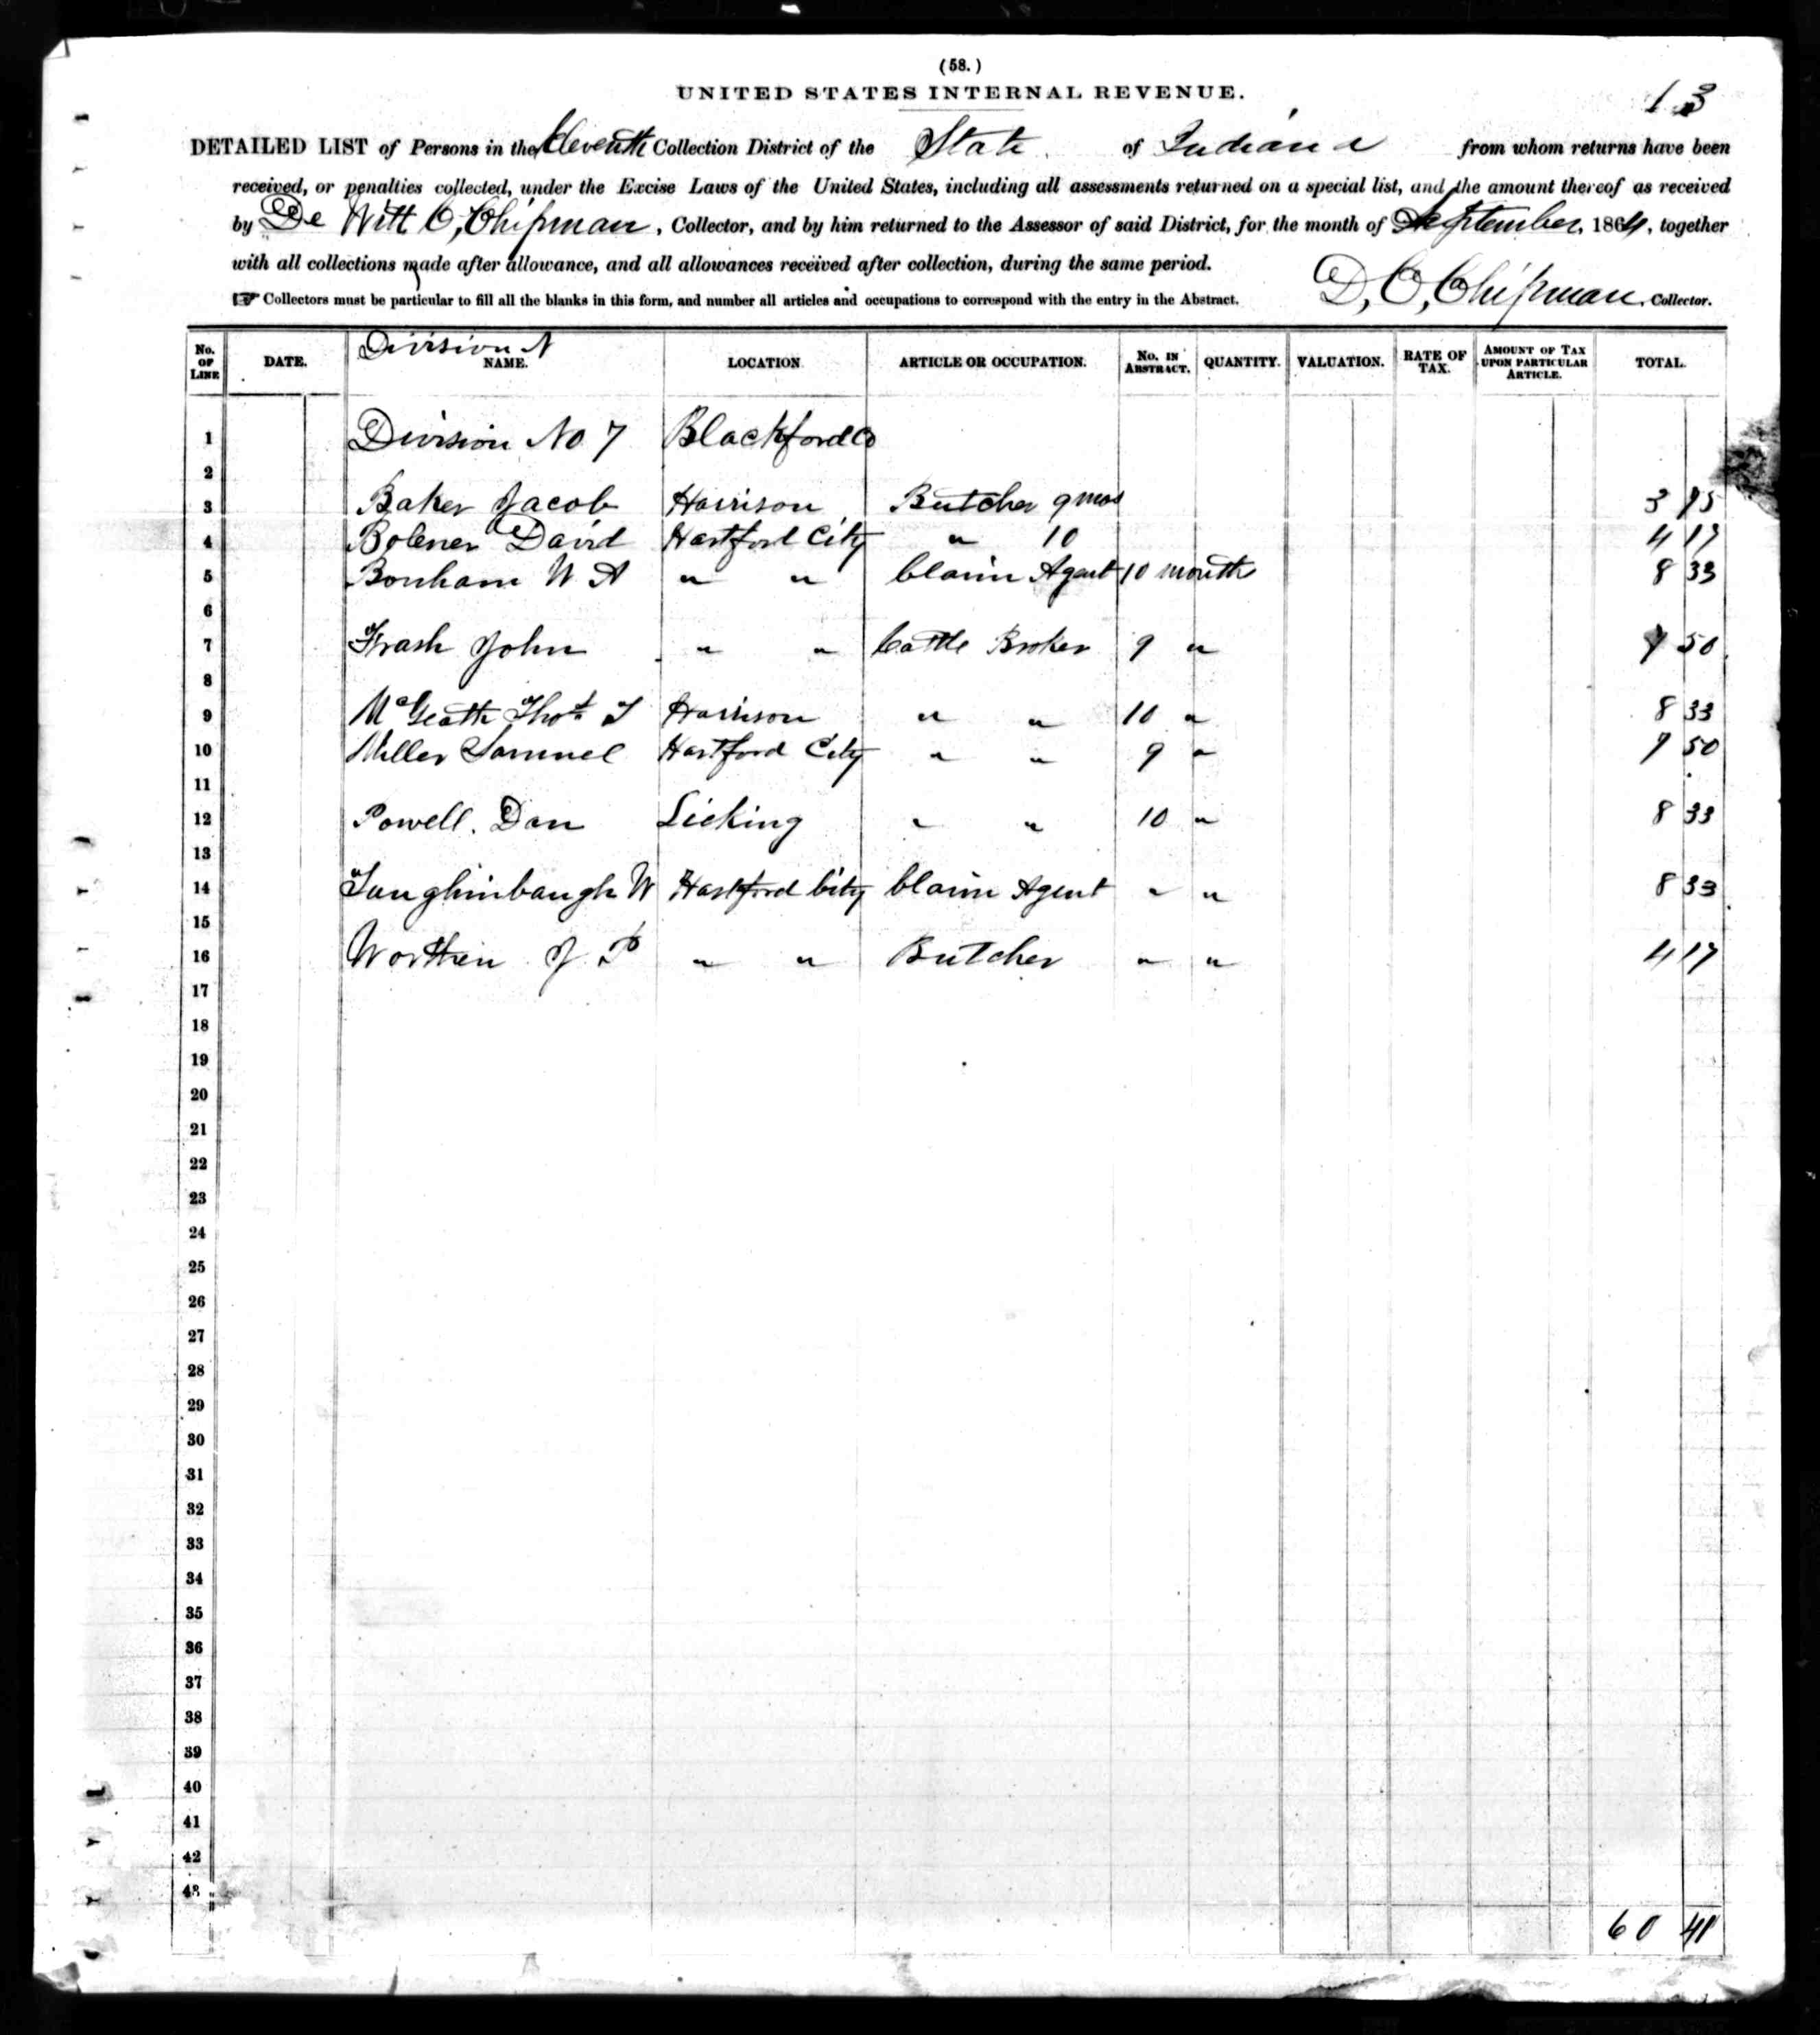 (58.)
UNITED STATES INTERNAL REVENUE.
13
DETAILED LIST of Persons in the Eleventh Collection District of the State of Indiana from whom returns have been
received, or penalties collected, under the Excise Laws of the United States, including all assessments returned on a special list, and the amount thereof as received
by De Witt C, Chipman, Collector, and by him returned to the Assessor of said District, for the month of September, 1864, together
with all collections made after allowance, and all allowances received after collection, during the same period.
☞ Collectors must be particular to fill all the blanks in this form, and number all articles and occupations to correspond with the entry in the Abstract.
D, C, Chipman, Collector.
Division N
No. OF LINE DATE. NAME. LOCATION. ARTICLE OR OCCUPATION. No. IN ABSTRACT. QUANTITY. VALUATION. RATE OF TAX. AMOUNT OF TAX UPON PARTICULAR ARTICLE. TOTAL.
1 Division No 7 Blackford Co
2
3 Baker Jacob Harrison Butcher 9 mos 3 75
4 David Hartford City " 10 4 17
5 Bonham W A " " Claim Agent 10 month 8 33
6
7 Frash John " " Cattle Broker 9 " 7 50
8
9 McGeath Thos J Harrison " " 10 " 8 33
10 Miller Samuel Hartford City " " 9 " 7 50
11
12 Powell. Dan Licking " " 10 " 8 33
13
14 W Hartford City Claim Agent " " 8 33
15
16 Worthen J P " " Butcher " " 4 17
17
18
19
20
21
22
23
24
25
26
27
28
29
30
31
32
33
34
35
36
37
38
39
40
41
42
43
60 41